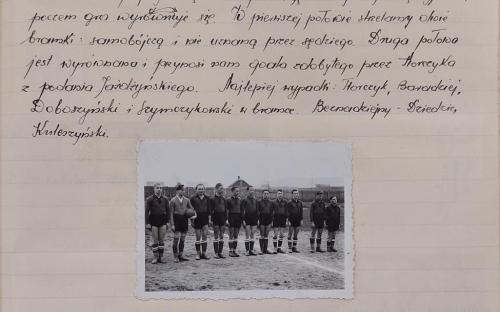 poczem gra wyrównuje się. W pierwszej połowie strzelamy dwie
bramki: samobójczą i nie uznaną przez sędziego. Druga połowa
jest wyrównana i przynosi nam goala zdobytego przez Horczyka
z podania Jażdżyńskiego. Najlepiej wypadli: Horczyk,
Doboszyński i Szymczykowski w bramce. Beznadziejny - Dziedzic,
Kuleszyński.